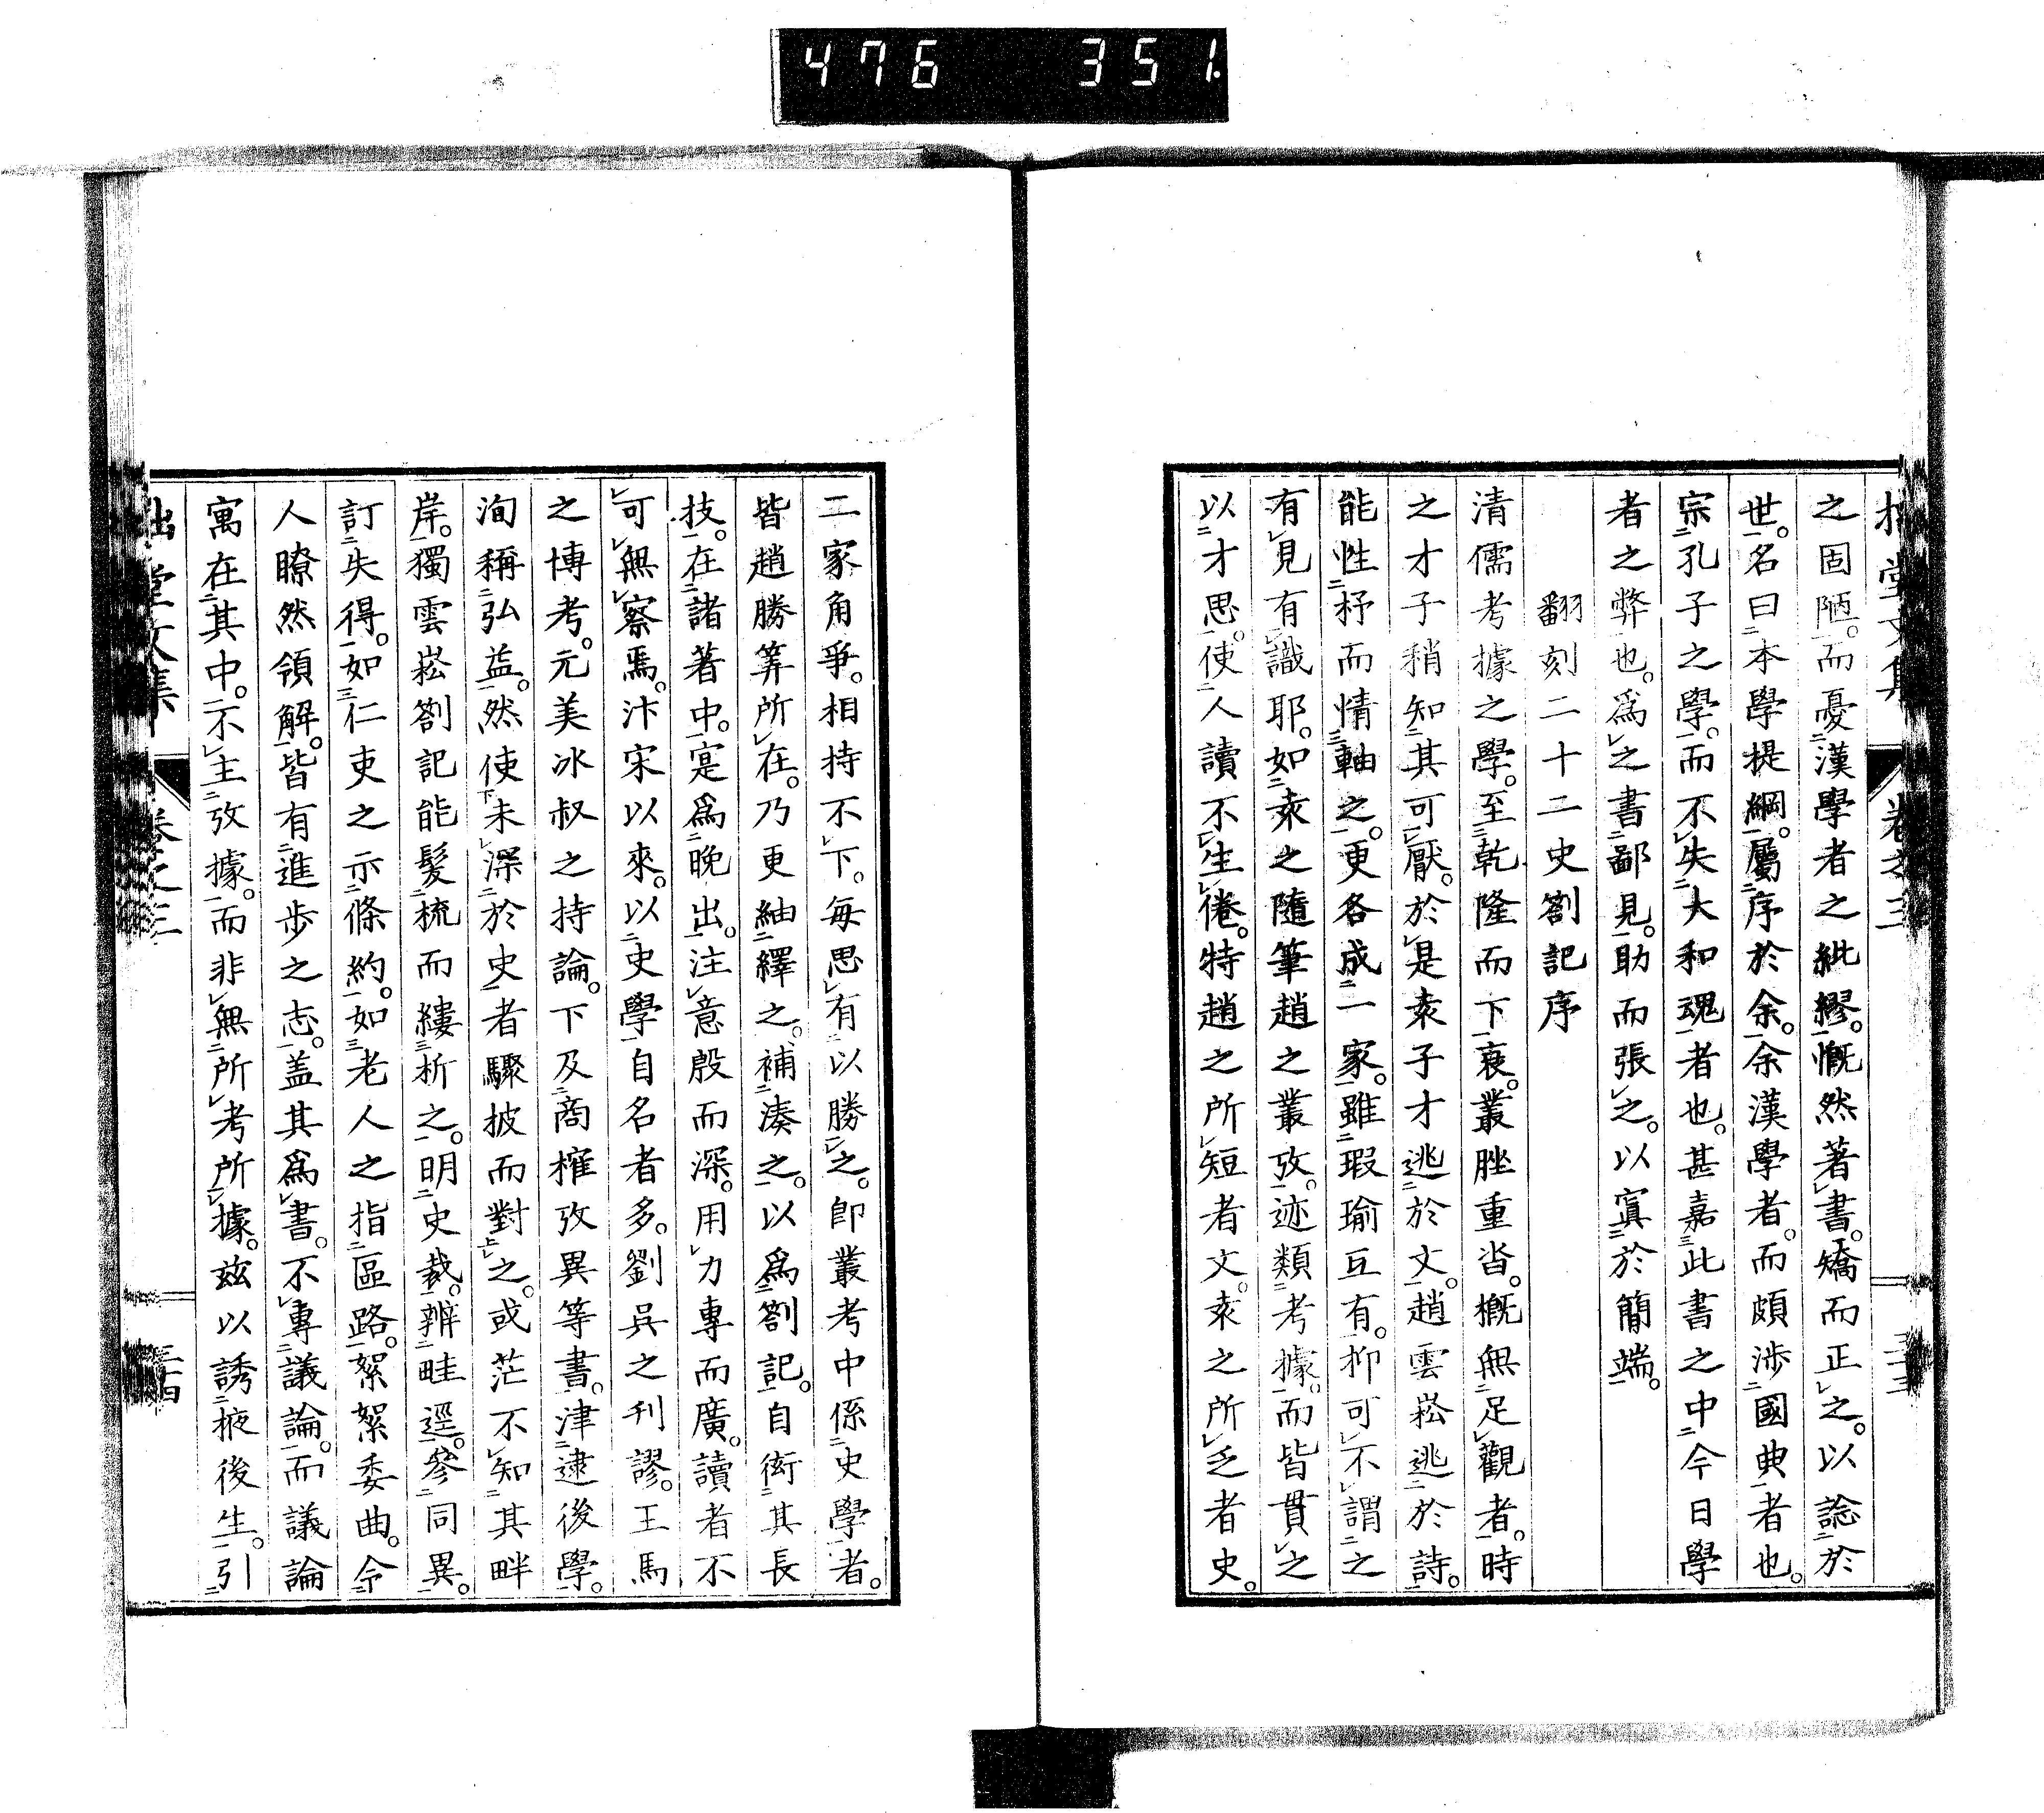 476 351
堂文集 卷之三
之固陋。而憂漢學者之紕繆。慨然著書。矯而正之。以諗於
世。名曰本學提綱。屬序於余。余漢學者。而頗涉國典者也。
宗孔子之學。而不失大和魂者也。甚嘉此書之中今日學
者之弊也。爲之書鄙見。助而張之。以寘於簡端。
翻刻二十二史劄記序
清儒考據之學。至乾隆而下衰。叢脞重沓。概無足觀者。時
之才子稍知其可厭。於是袁子才逃於文。趙雲崧逃於詩。
能性杼而情軸之。更各成一家。雖瑕瑜互有。抑可不謂之
有見有識耶。如袁之隨筆趙之叢攷。迹類考據。而皆貫之
以才思。使人讀不生倦。特趙之所短者文。袁之所乏者史。
二家角爭。相持不下。每思有以勝之。卽叢考中係史學者。
皆趙勝筭所在。乃更紬繹之。補湊之。以爲劄記。自衒其長
技。在諸著中。寔爲晚出。注意殷而深。用力專而廣。讀者不
可無察焉。汴宋以來。以史學自名者多。劉吳之刊謬。王馬
之博考。元美冰叔之持論。下及商榷攷異等書。津逮後學。
洵稱弘益。然使未深於史者驟披而對之。或茫不知其畔
岸。獨雲崧劄記能髮梳而縷析之。明史裁。辨畦逕。參同異。
訂失得。如仁吏之示條約。如老人之指區路。絮絮委曲。令
人瞭然領解。皆有進步之志。盖其爲書。不專議論。而議論
寓在其中。不主攷據。而非無所考所據。玆以誘掖後生。引
拙堂文集 卷之三 三十四